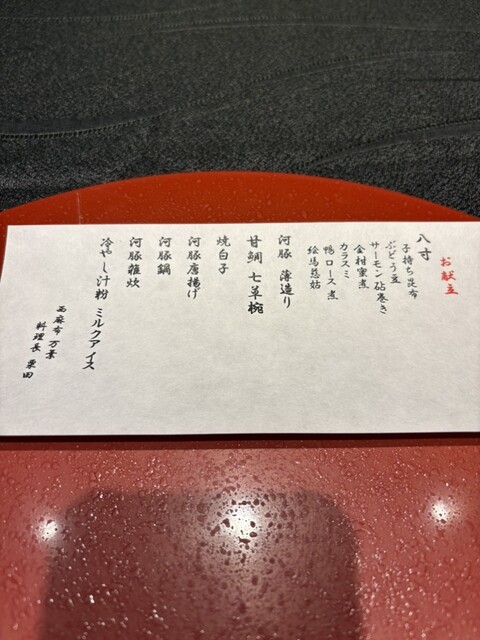 お献立
八寸
子持ち昆布
ぶどう豆
サーモン砧巻き
金柑蜜煮
カラスミ
鴨ロース煮
絵馬慈姑
河豚 薄造り
甘鯛 七草椀
焼白子
河豚唐揚げ
河豚鍋
河豚雑炊
冷やし汁粉 ミルクアイス
西麻布 万葉
料理長 栗田